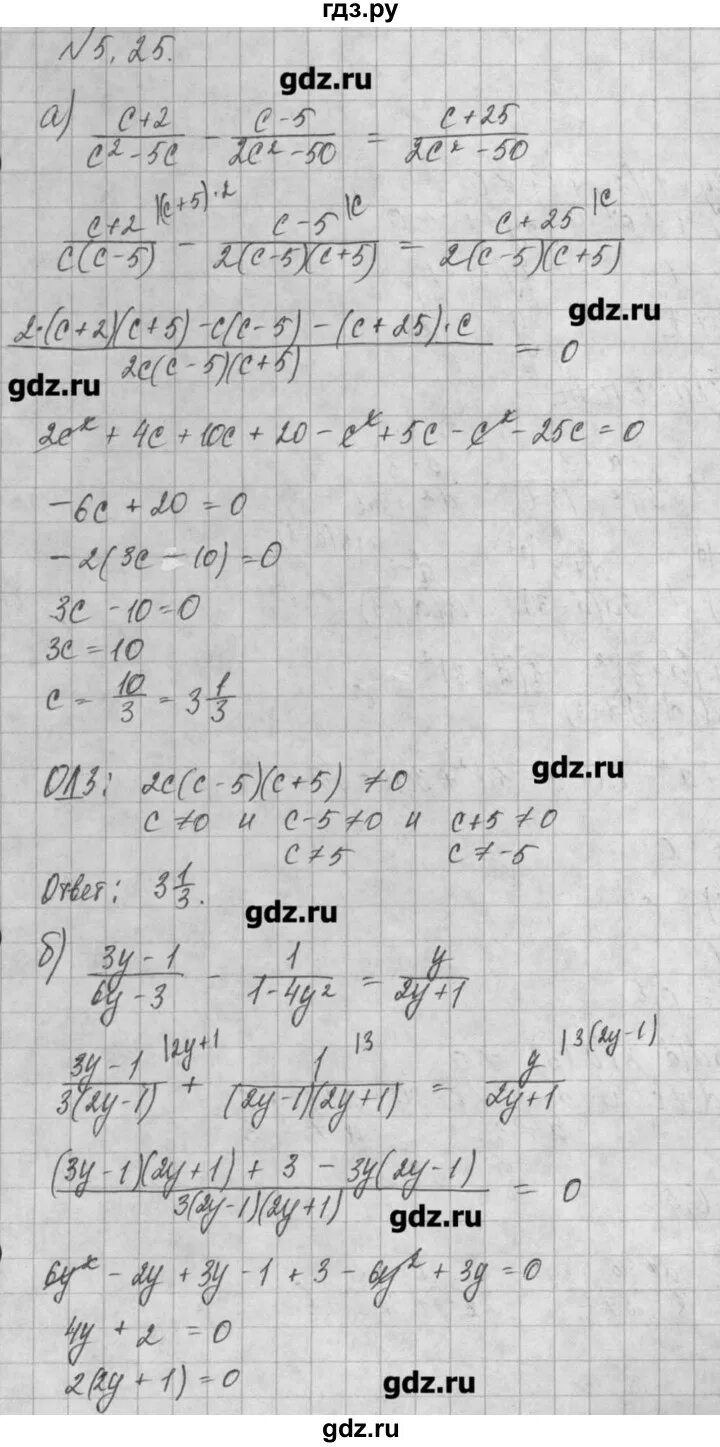 гдз.ру
№5.25.
gdz.ru
а) (c+2)/(c²-5c) - (c-5)/(2c²-50) = (c+25)/(2c²-50)
(c+2)/(c(c-5)) |(c+5)·2 - (c-5)/(2(c-5)(c+5)) |c = (c+25)/(2(c-5)(c+5)) |c
gdz.ru
(2·(c+2)(c+5) - c(c-5) - (c+25)·c)/(2c(c-5)(c+5)) = 0
gdz.ru
2c² + 4c + 10c + 20 - c² + 5c - c² - 25c = 0
-6c + 20 = 0
-2(3c - 10) = 0
3c - 10 = 0
3c = 10
c = 10/3 = 3 1/3
gdz.ru
ОДЗ: 2c(c-5)(c+5) ≠ 0
c ≠ 0 и c-5 ≠ 0 и c+5 ≠ 0
c ≠ 5 c ≠ -5
Ответ: 3 1/3.
gdz.ru
б) (3y-1)/(6y-3) - 1/(1-4y²) = y/(2y+1)
(3y-1)/(3(2y-1)) |2y+1 + 1/((2y-1)(2y+1)) |3 = y/(2y+1) |3(2y-1)
((3y-1)(2y+1) + 3 - 3y(2y-1))/(3(2y-1)(2y+1)) = 0
gdz.ru
6y² - 2y + 3y - 1 + 3 - 6y² + 3y = 0
4y + 2 = 0
2(2y + 1) = 0
gdz.ru
gdz.ru